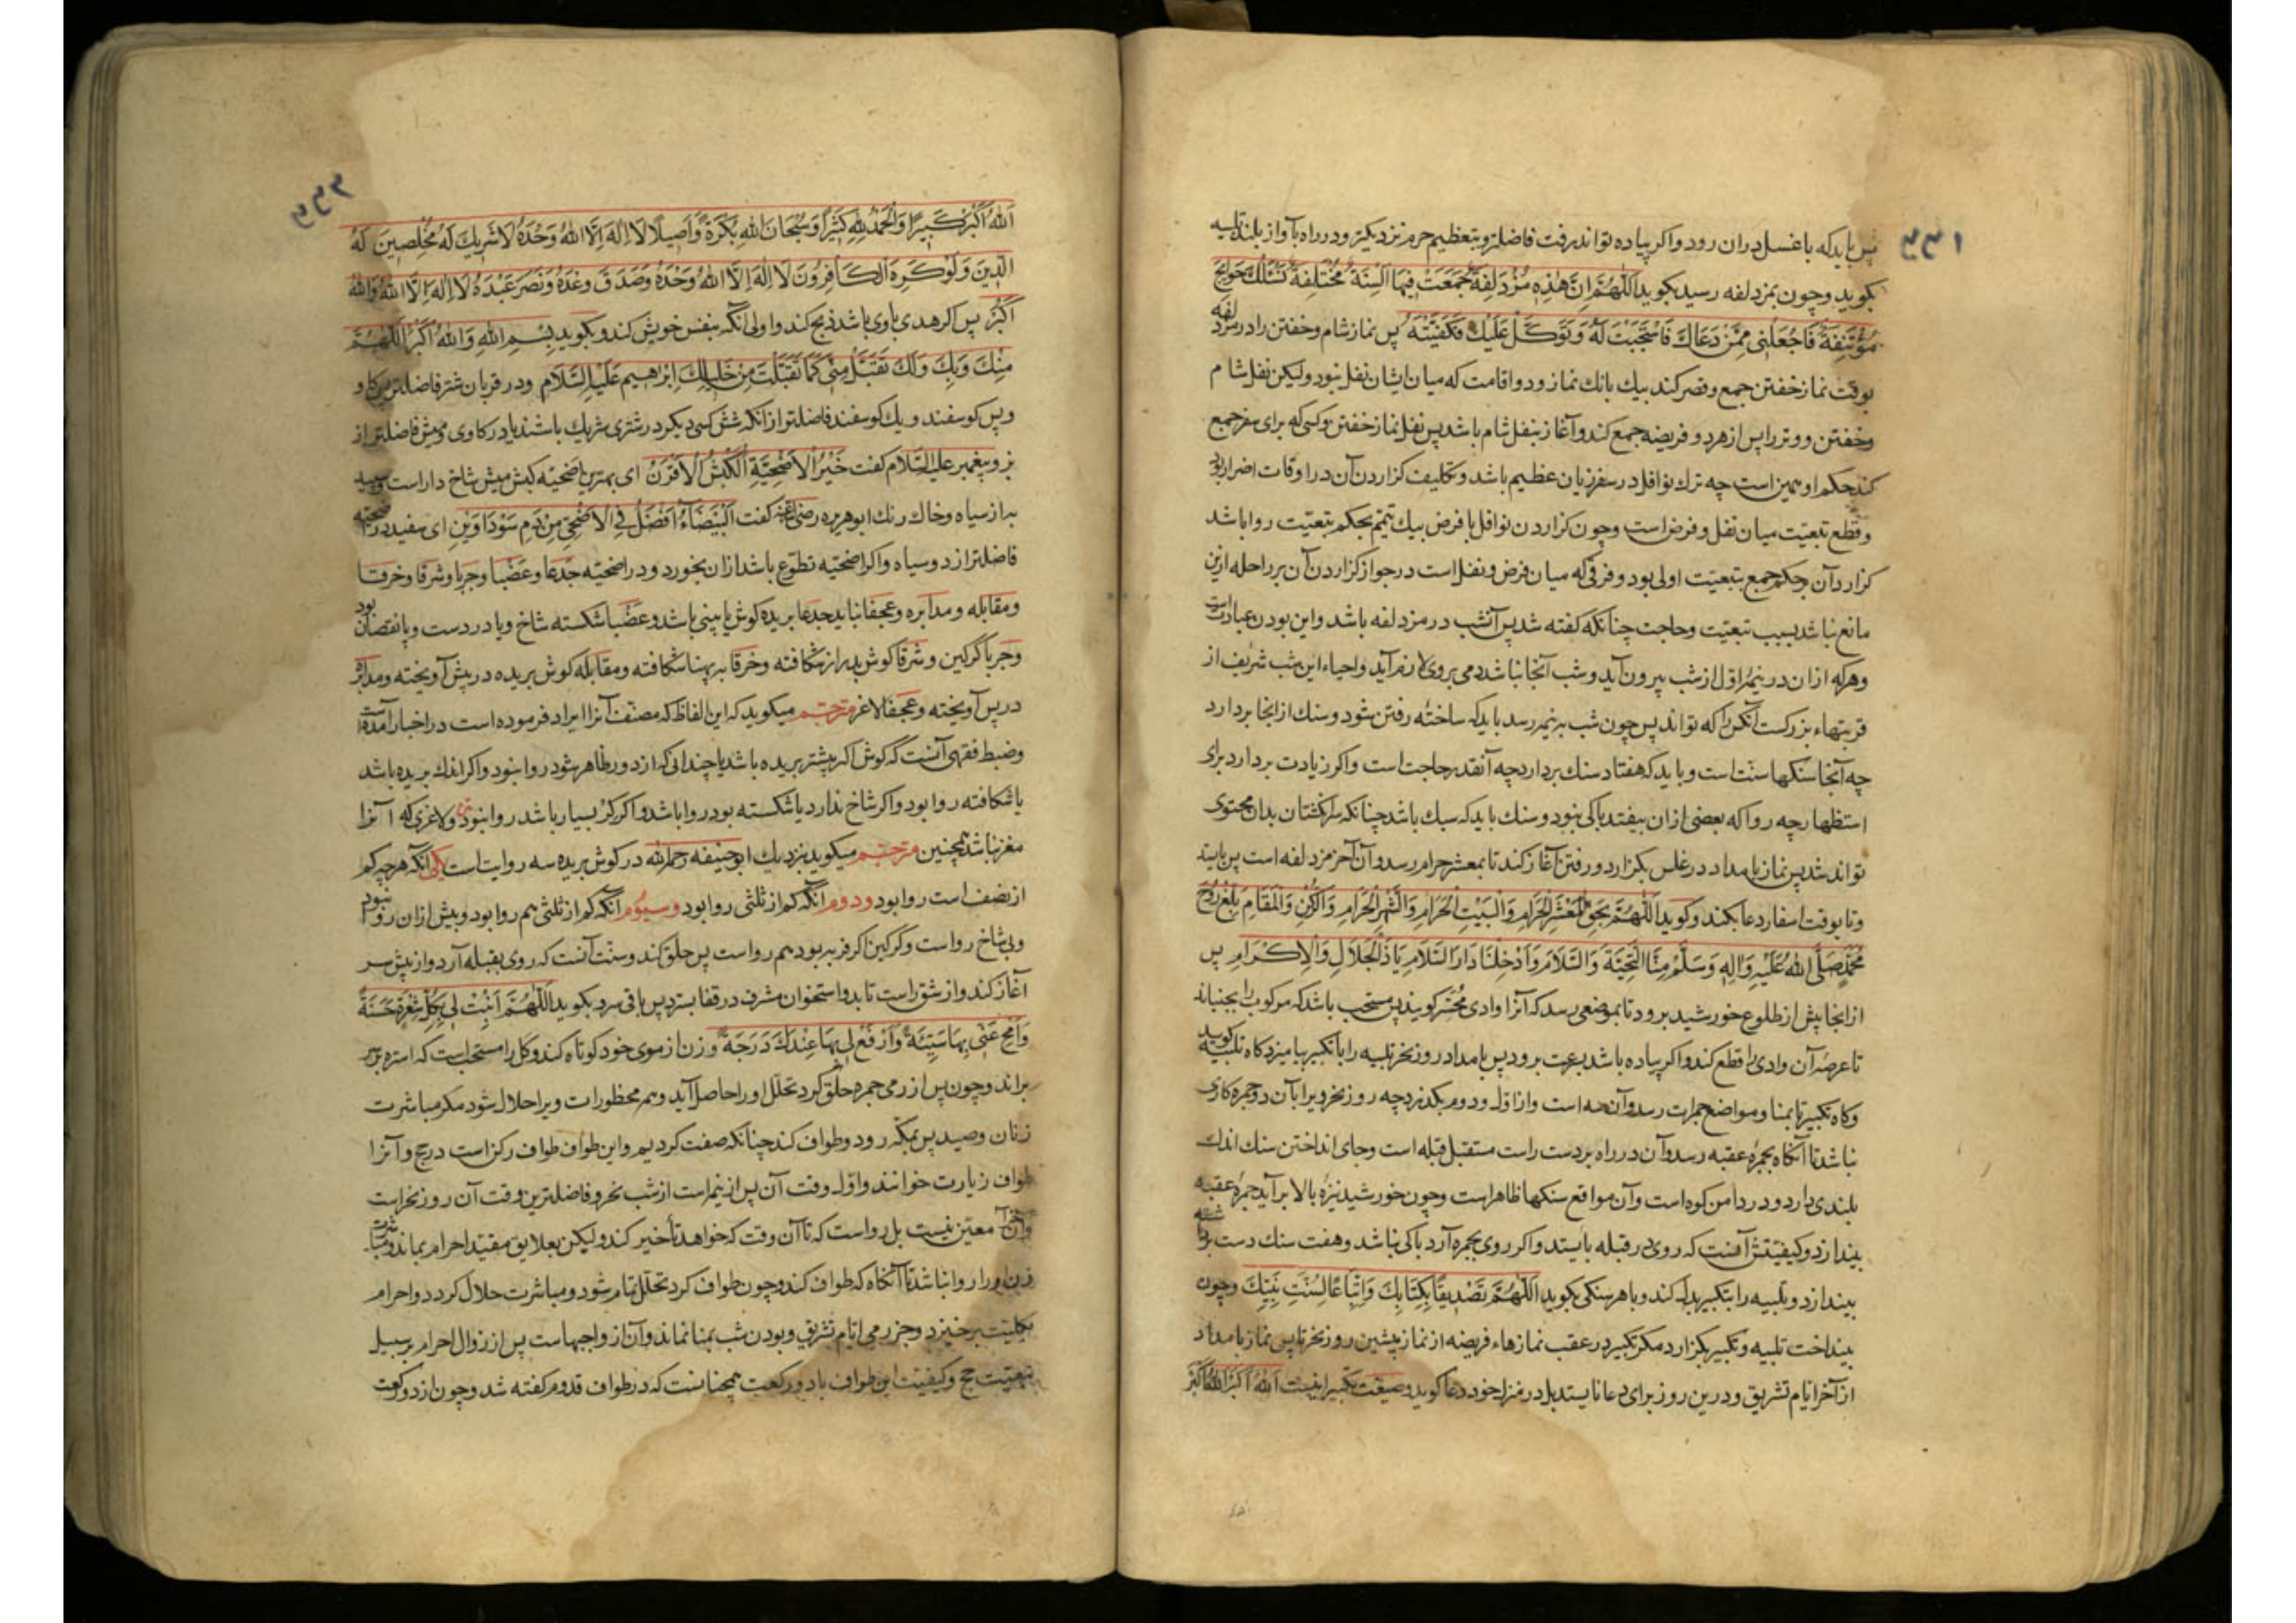 پس باید که با غسل دران رود واکر پیاده تواند رفت فاضلتر و بتعظیم حرم نزدیکتر ودر راه بآواز بلند تلبیه
بکوید وچون بمزدلفه رسید بکوید اللّٰهُمَّ اِنَّ هٰذِهِ مُزْدَلِفَةٌ جُمِعَتْ فِیهَا اَلْسِنَةٌ مُخْتَلِفَةٌ نَسْئَلُكَ حَوَایِجَ
مُؤْتَنِفَةً فَاجْعَلْنِی مِمَّنْ دَعَاكَ فَاسْتَجَبْتَ لَهُ وَتَوَكَّلَ عَلَیْكَ فَكَفَیْتَهُ پس نماز شام وخفتن را در مزدلفه
بوقت نماز خفتن جمع وقصر کند بیك بانك نماز ودو اقامت که میان ایشان نفل نبود ولیکن نفل شام
وخفتن ووتر را پس از هر دو فریضه جمع کند وآغاز بنفل شام باشد پس نفل نماز خفتن وکسی که برای سفر جمع
کند حکم او همین است چه ترك نوافل در سفر زیان عظیم باشد وتکلیف کزاردن آن در اوقات اضرار بود
وقطع تبعیّت میان نفل وفرض است وچون کزاردن نوافل با فرض بیك تیمّم بحکم تبعیّت روا باشد
کزارد آن بحکم جمع بتبعیّت اولی بود وفرقی که میان فرض ونفل است در جواز کزاردن آن بر راحله ازین
مانع نباشد بسبب تبعیّت وحاجت چنانکه کفته شد پس آنشب در مزدلفه باشد واین بودن عبادت است
وهر که ازان در نیمهٔ اوّل از شب بیرون آید وشب آنجا نباشد دمی بروی لازم آید واحیاء این شب شریف از
قربتهاء بزرکست آنکس را که تواند پس چون شب بنیمه رسد باید که ساختهٔ رفتن شود وسنك ازانجا بردارد
چه آنجا سنکها سست است وباید که هفتاد سنك بردارد چه آنقدر حاجت است واکر زیادت بردارد برای
استظهار چه روا که بعضی ازان بیفتد باکی نبود وسنك باید که سبك باشد چنانکه سر انکشتان بدان محتوی
تواند شد پس نماز بامداد در غلس بکزارد ورفتن آغاز کند تا بمعشر حرام رسد وآن آخر مزدلفه است پس بایستد
وتا بوقت اسفار دعا بکند وکوید اَللّٰهُمَّ بِحَقِّ الْمَعْشَرِ الْحَرَامِ وَالْبَیْتِ الْحَرَامِ وَالشَّهْرِ الْحَرَامِ وَالرُّكْنِ وَالْمَقَامِ بَلِّغْ رُوحَ
مُحَمَّدٍ صَلَّی اللهُ عَلَیْهِ وَاٰلِهِ وَسَلَّمَ مِنَّا التَّحِیَّةَ وَالسَّلَامَ وَاَدْخِلْنَا دَارَ السَّلَامِ یَا ذَا الْجَلَالِ وَالْاِكْرَامِ پس
ازانجا پیش از طلوع خورشید برود تا بموضعی رسد که آنرا وادی مُحَسِّر کویند پس مستحب باشد که مرکوب را بجنباند
تا عرصهٔ آن وادی را قطع کند واکر پیاده باشد بسرعت برود پس بامداد روز نحر تلبیه را با تکبیر بیامیزد کاه تلبیه کوید
وکاه تکبیر تا بمنا ومواضع جمرات رسد وآن سه است واز اوّل ودوم بکذرد چه روز نحر ویرا بآن دو جمره کاری
نباشد تا آنکاه بجمرهٔ عقبه رسد وآن در راه بر دست راست مستقبل قبله است وجای انداختن سنك اندك
بلندی دارد ودر دامن کوه است وآن مواقع سنکها ظاهر است وچون خورشید نیزهٔ بالا برآید جمرهٔ عقبه
بیندازد وکیفیّتش آنست که روی در قبله بایستد واکر روی بجمره آرد باکی نباشد وهفت سنك دست برداشته
بیندازد وتلبیه را بتکبیر بدل کند وبا هر سنکی بکوید اَللّٰهُمَّ تَصْدِیقًا بِكِتَابِكَ وَاتِّبَاعًا لِسُنَّتِ نَبِیِّكَ وچون
بینداخت تلبیه وتکبیر بکزارد مکر تکبیر در عقب نمازهاء فریضه از نماز پیشین روز نحر تا پس نماز بامداد
از آخر ایّام تشریق ودرین روز برای دعا نایستد بل در منزل خود دعا کوید وصیغت تکبیر اینست اَللهُ اَكْبَرُ اَللهُ اَكْبَرُ
اَللهُ اَكْبَرُ كَبِیرًا وَالْحَمْدُ لِلّٰهِ كَثِیرًا وَسُبْحَانَ اللهِ بُكْرَةً وَاَصِیلًا لَا اِلٰهَ اِلَّا اللهُ وَحْدَهُ لَا شَرِیكَ لَهُ مُخْلِصِینَ لَهُ
الدِّینَ وَلَوْ كَرِهَ الْكَافِرُونَ لَا اِلٰهَ اِلَّا اللهُ وَحْدَهُ وَصَدَقَ وَعْدَهُ وَنَصَرَ عَبْدَهُ لَا اِلٰهَ اِلَّا اللهُ وَاللهُ
اَكْبَرُ پس اکر هدی باوی باشد ذبح کند واولی آنکه بنفس خویش کند وبکوید بِسْمِ اللهِ وَاللهُ اَكْبَرُ اَللّٰهُمَّ
مِنْكَ وَبِكَ وَلَكَ تَقَبَّلْ مِنِّی كَمَا تَقَبَّلْتَ مِنْ خَلِیلِكَ اِبْرٰهِیمَ عَلَیْهِ السَّلَام ودر قربان شتر فاضلتر پس کاو
وپس کوسفند ویك کوسفند فاضلتر ازانکه شش کسی دیکر در شتری شریك باشند یا در کاوی ومیش فاضلتر از
بز وپیغمبر علیه السّلام کفت خَیْرُ الْاُضْحِیَّةِ الْكَبْشُ الْاَقْرَنُ ای بهترین اضحیّه کبش میش شاخ دار است وسپید
به از سیاه وخاك رنك ابوهریره رضی الله عنه کفت اَلْبَیْضَاءُ اَفْضَلُ فِی الْاَضْحٰی مِنْ دَمِ سَوْدَاوَیْنِ ای سفید در اضحیّه
فاضلتر از دو سیاه واکر اضحیّه تطوّع باشد ازان بخورد ودر اضحیّه جدعا وعضبا وجربا وشرقا وخرقا
ومقابله ومدابره وعجفا نباید جدعا بریده کوش یا بینی باشد وعضبا شکسته شاخ ویا در دست وپا نقصان بود
وجربا کرکین وشرقا کوش بدرازی شکافته وخرقا بپهنا شکافته ومقابله کوش بریده در پیش آویخته ومدابره
در پس آویخته وعجفا لاغر مترجم میکوید که این الفاظ که مصنّف آنرا ایراد فرموده است در اخبار آمده است
وضبط فقهی آنست که کوش اکر بیشتر بریده باشد یا چندانی که از دور ظاهر شود روا نبود واکر اندك بریده باشد
یا شکافته روا بود واکر شاخ ندارد یا شکسته بود روا باشد واکر کر بسیار باشد روا نبود ولاغری که آنرا
مغز نباشد همچنین مترجم میکوید بنزدیك ابوحنیفه رحمه الله در کوش بریده سه روایت است یکی آنکه هر چه کم
از نصف است روا بود ودوم آنکه کم از ثلثی روا بود وسیوم آنکه کم از ثلثی هم روا بود وبیش ازان روا نبود
وبی شاخ رواست وکرکین اکر فربه بود هم رواست پس حلق کند وسنّت آنست که روی بقبله آرد واز پیش سر
آغاز کند واز شقّ راست تا بدو استخوان مشرف در قفا بسترد پس باقی سر وبکوید اَللّٰهُمَّ اَثْبِتْ لِی بِكُلِّ شَعْرَةٍ حَسَنَةً
وَامْحُ عَنِّی بِهَا سَیِّئَةً وَارْفَعْ لِی بِهَا عِنْدَكَ دَرَجَةً وزن از موی خود کوتاه کند وکل را مستحب است که استره بر سر
براند وچون پس از رمی جمره حلق کرد تحلّل اوّل حاصل آید وهمه محظورات ویرا حلال شود مکر مباشرت
زنان وصید پس بمکّه رود وطواف کند چنانکه صفت کردیم واین طواف طواف رکن است در حج وآنرا
طواف زیارت خوانند واوّل وقت آن پس از نیمه است از شب نحر وفاضلترین وقت آن روز نحر است
وآخر آن معیّن نیست بل رواست که تا آن وقت که خواهد تأخیر کند ولیکن بعلایق مقیّد احرام بماند ومباشرت
زنان اورا روا نباشد تا آنکاه که طواف کند وچون طواف کرد تحلّل تمام شود ومباشرت حلال کردد واحرام
بکلیّت برخیزد وجز رمی ایّام تشریق وبودن شب بمنا نماند وآن از واجبهاست پس از زوال احرام بر سبیل
تبعیّت حج وکیفیّت این طواف با دو رکعت همچنانست که در طواف قدوم کفته شد وچون از دو رکعت